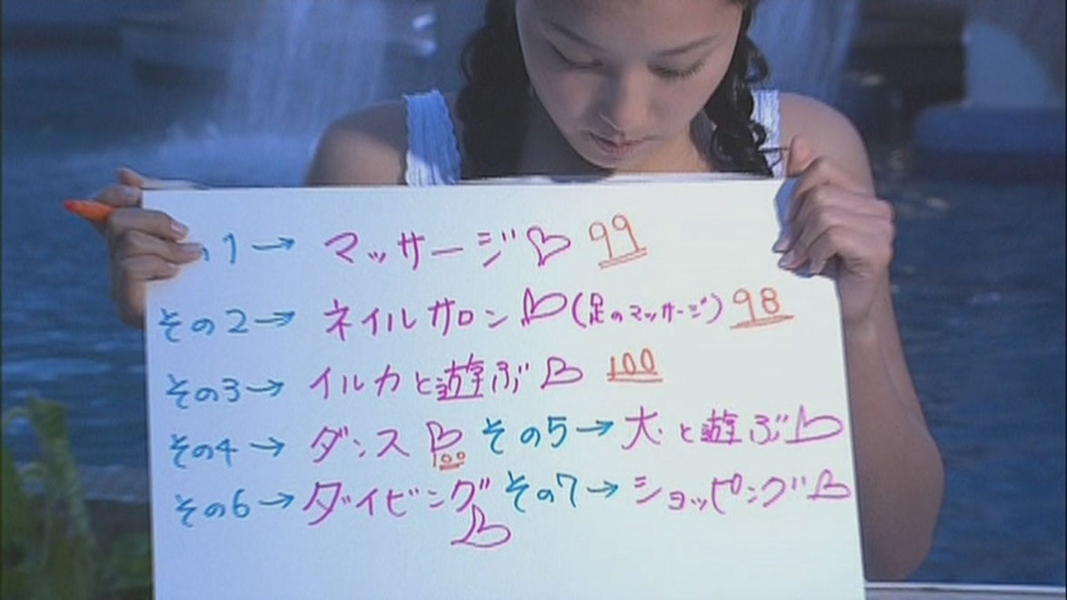 の1→ マッサージ♡ 99
その2→ ネイルサロン♡(足のマッサージ) 98
その3→ イルカと遊ぶ♡ 100
その4→ ダンス♡100 その5→ 犬と遊ぶ♡
その6→ ダイビング♡ その7→ ショッピング♡